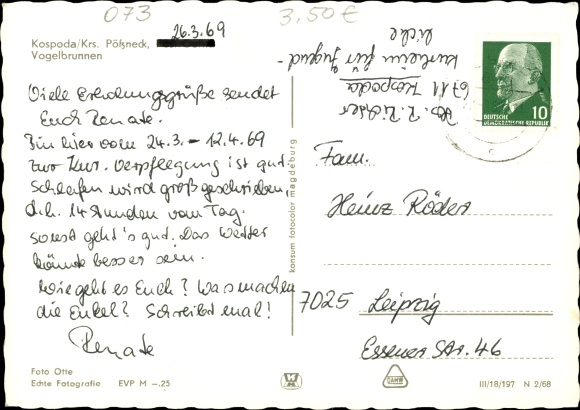 073
3,50 €
26.3.69
Kospoda/Krs. Pößneck,
Vogelbrunnen
Viele Erholungsgrüße sendet
Euch Renate.
Bin hier vom 24.3. – 12.4.69
zur Kur. Verpflegung ist gut.
Schlafen wird groß geschrieben,
d.h. 14 Stunden vom Tag.
sonst geht's gut. Das Wetter
könnte besser sein.
Wie geht es Euch? Was machen
die Enkel? Schreibt mal!
Renate
Foto Otte
Echte Fotografie EVP M –.25
konsum fotocolor magdeburg
Abs. R.
6711 Kospoda
Kurheim für Jugend-
liche
DEUTSCHE
DEMOKRATISCHE REPUBLIK
10
Fam.
Heinz Röder
7025 Leipzig
Essener Str. 46
III/18/197 N 2/68